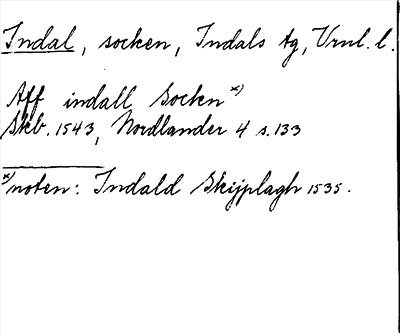 Indal, socken, Indals tg, Vrnl. l.
Aff indall Sockn x)
Skb. 1543, Nordlander 4 s. 133
x) noten: Indald Skijplagh 1535.